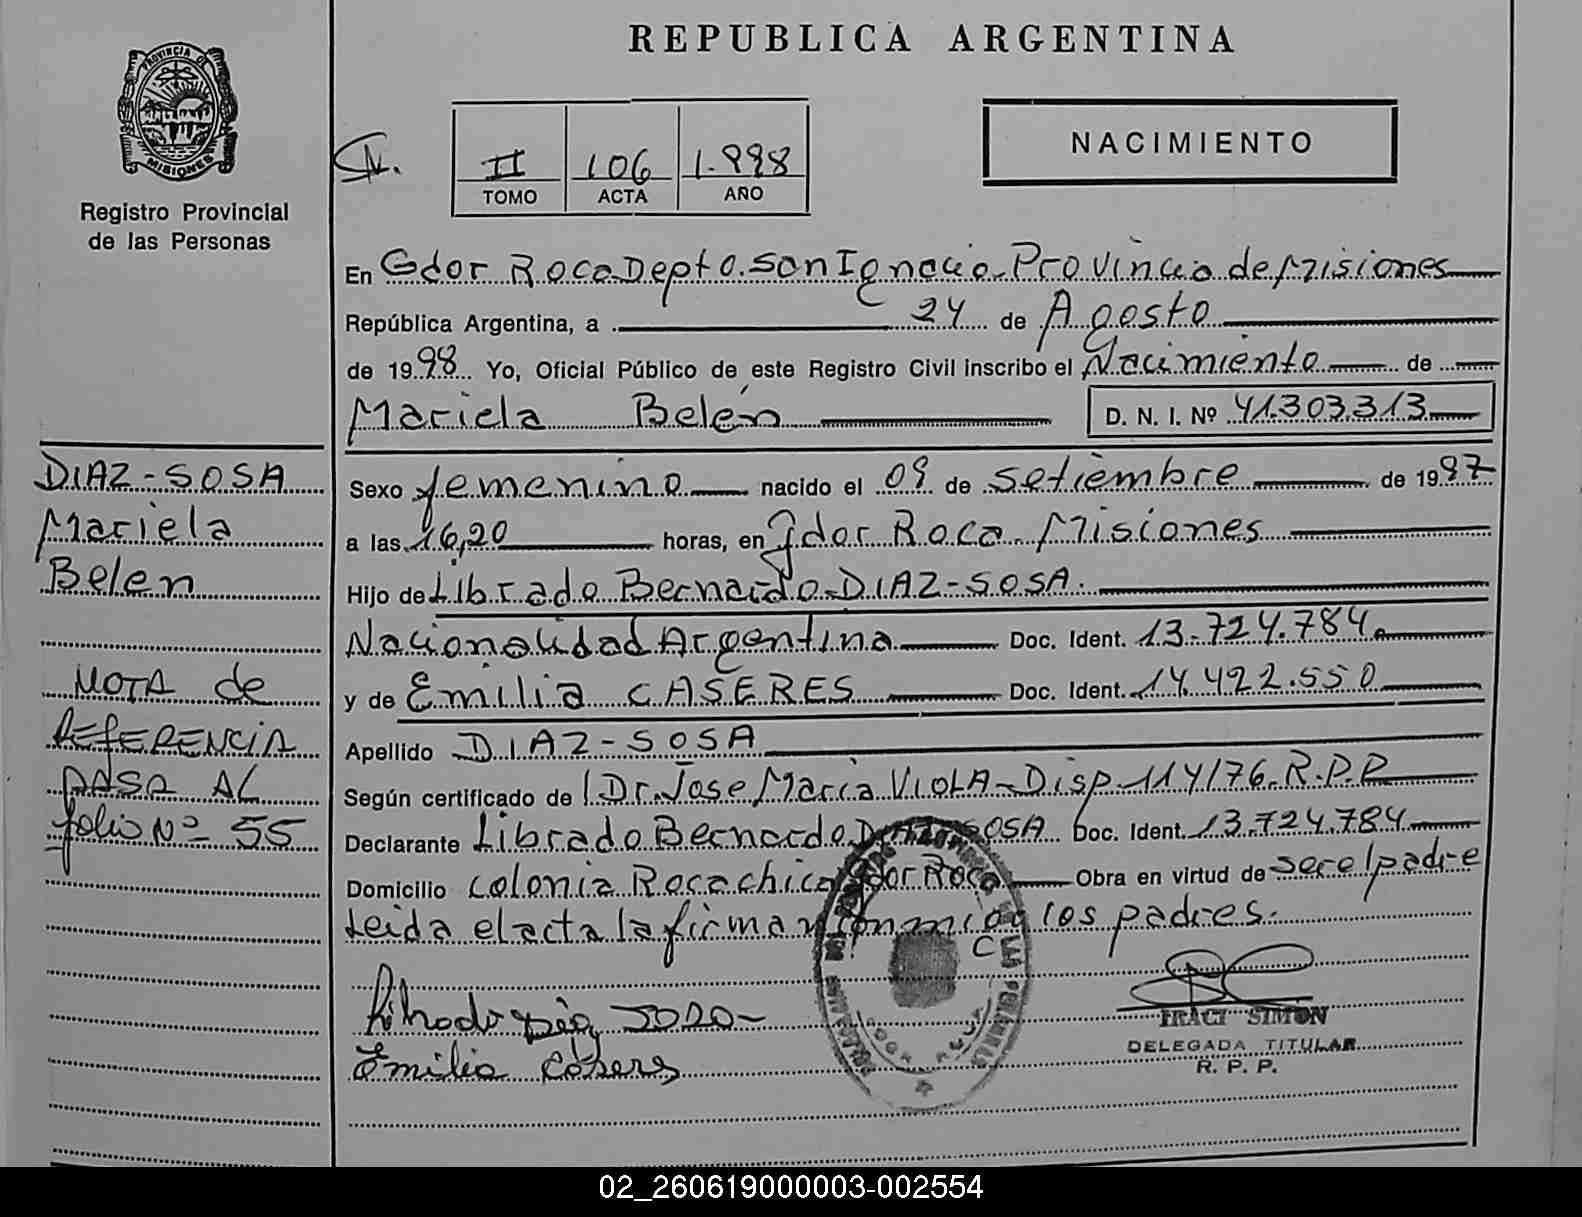 REPUBLICA ARGENTINA
PROVINCIA DE
MISIONES
Registro Provincial
de las Personas
II 106 1.998
TOMO ACTA AÑO
NACIMIENTO
En Gdor Roca Depto. San Ignacio - Provincia de Misiones
República Argentina, a 24 de Agosto
de 1998 Yo, Oficial Público de este Registro Civil inscribo el Nacimiento de
Mariela Belén D. N. I. Nº 41.303.313
DIAZ-SOSA
Mariela
Belen
NOTA de
REFERENCIA
PASA AL
folio Nº 55
Sexo femenino nacido el 09 de setiembre de 1997
a las 16,20 horas, en Gdor Roca. Misiones
Hijo de Librado Bernardo DIAZ-SOSA.
Nacionalidad Argentina Doc. Ident. 13.724.784
y de Emilia CASERES Doc. Ident. 14.422.550
Apellido DIAZ-SOSA
Según certificado de Dr. Jose Maria VIOLA - Disp. 114/76. R.P.P
Declarante Librado Bernardo DIAZ SOSA Doc. Ident. 13.724.784
Domicilio colonia Roca chica Gdor Roca Obra en virtud de ser el padre
Leida el acta la firman conmigo los padres.
Librado Diaz SOSA
Emilia Caseres
IRACI SIMON
DELEGADA TITULAR
R. P. P.
02_260619000003-002554